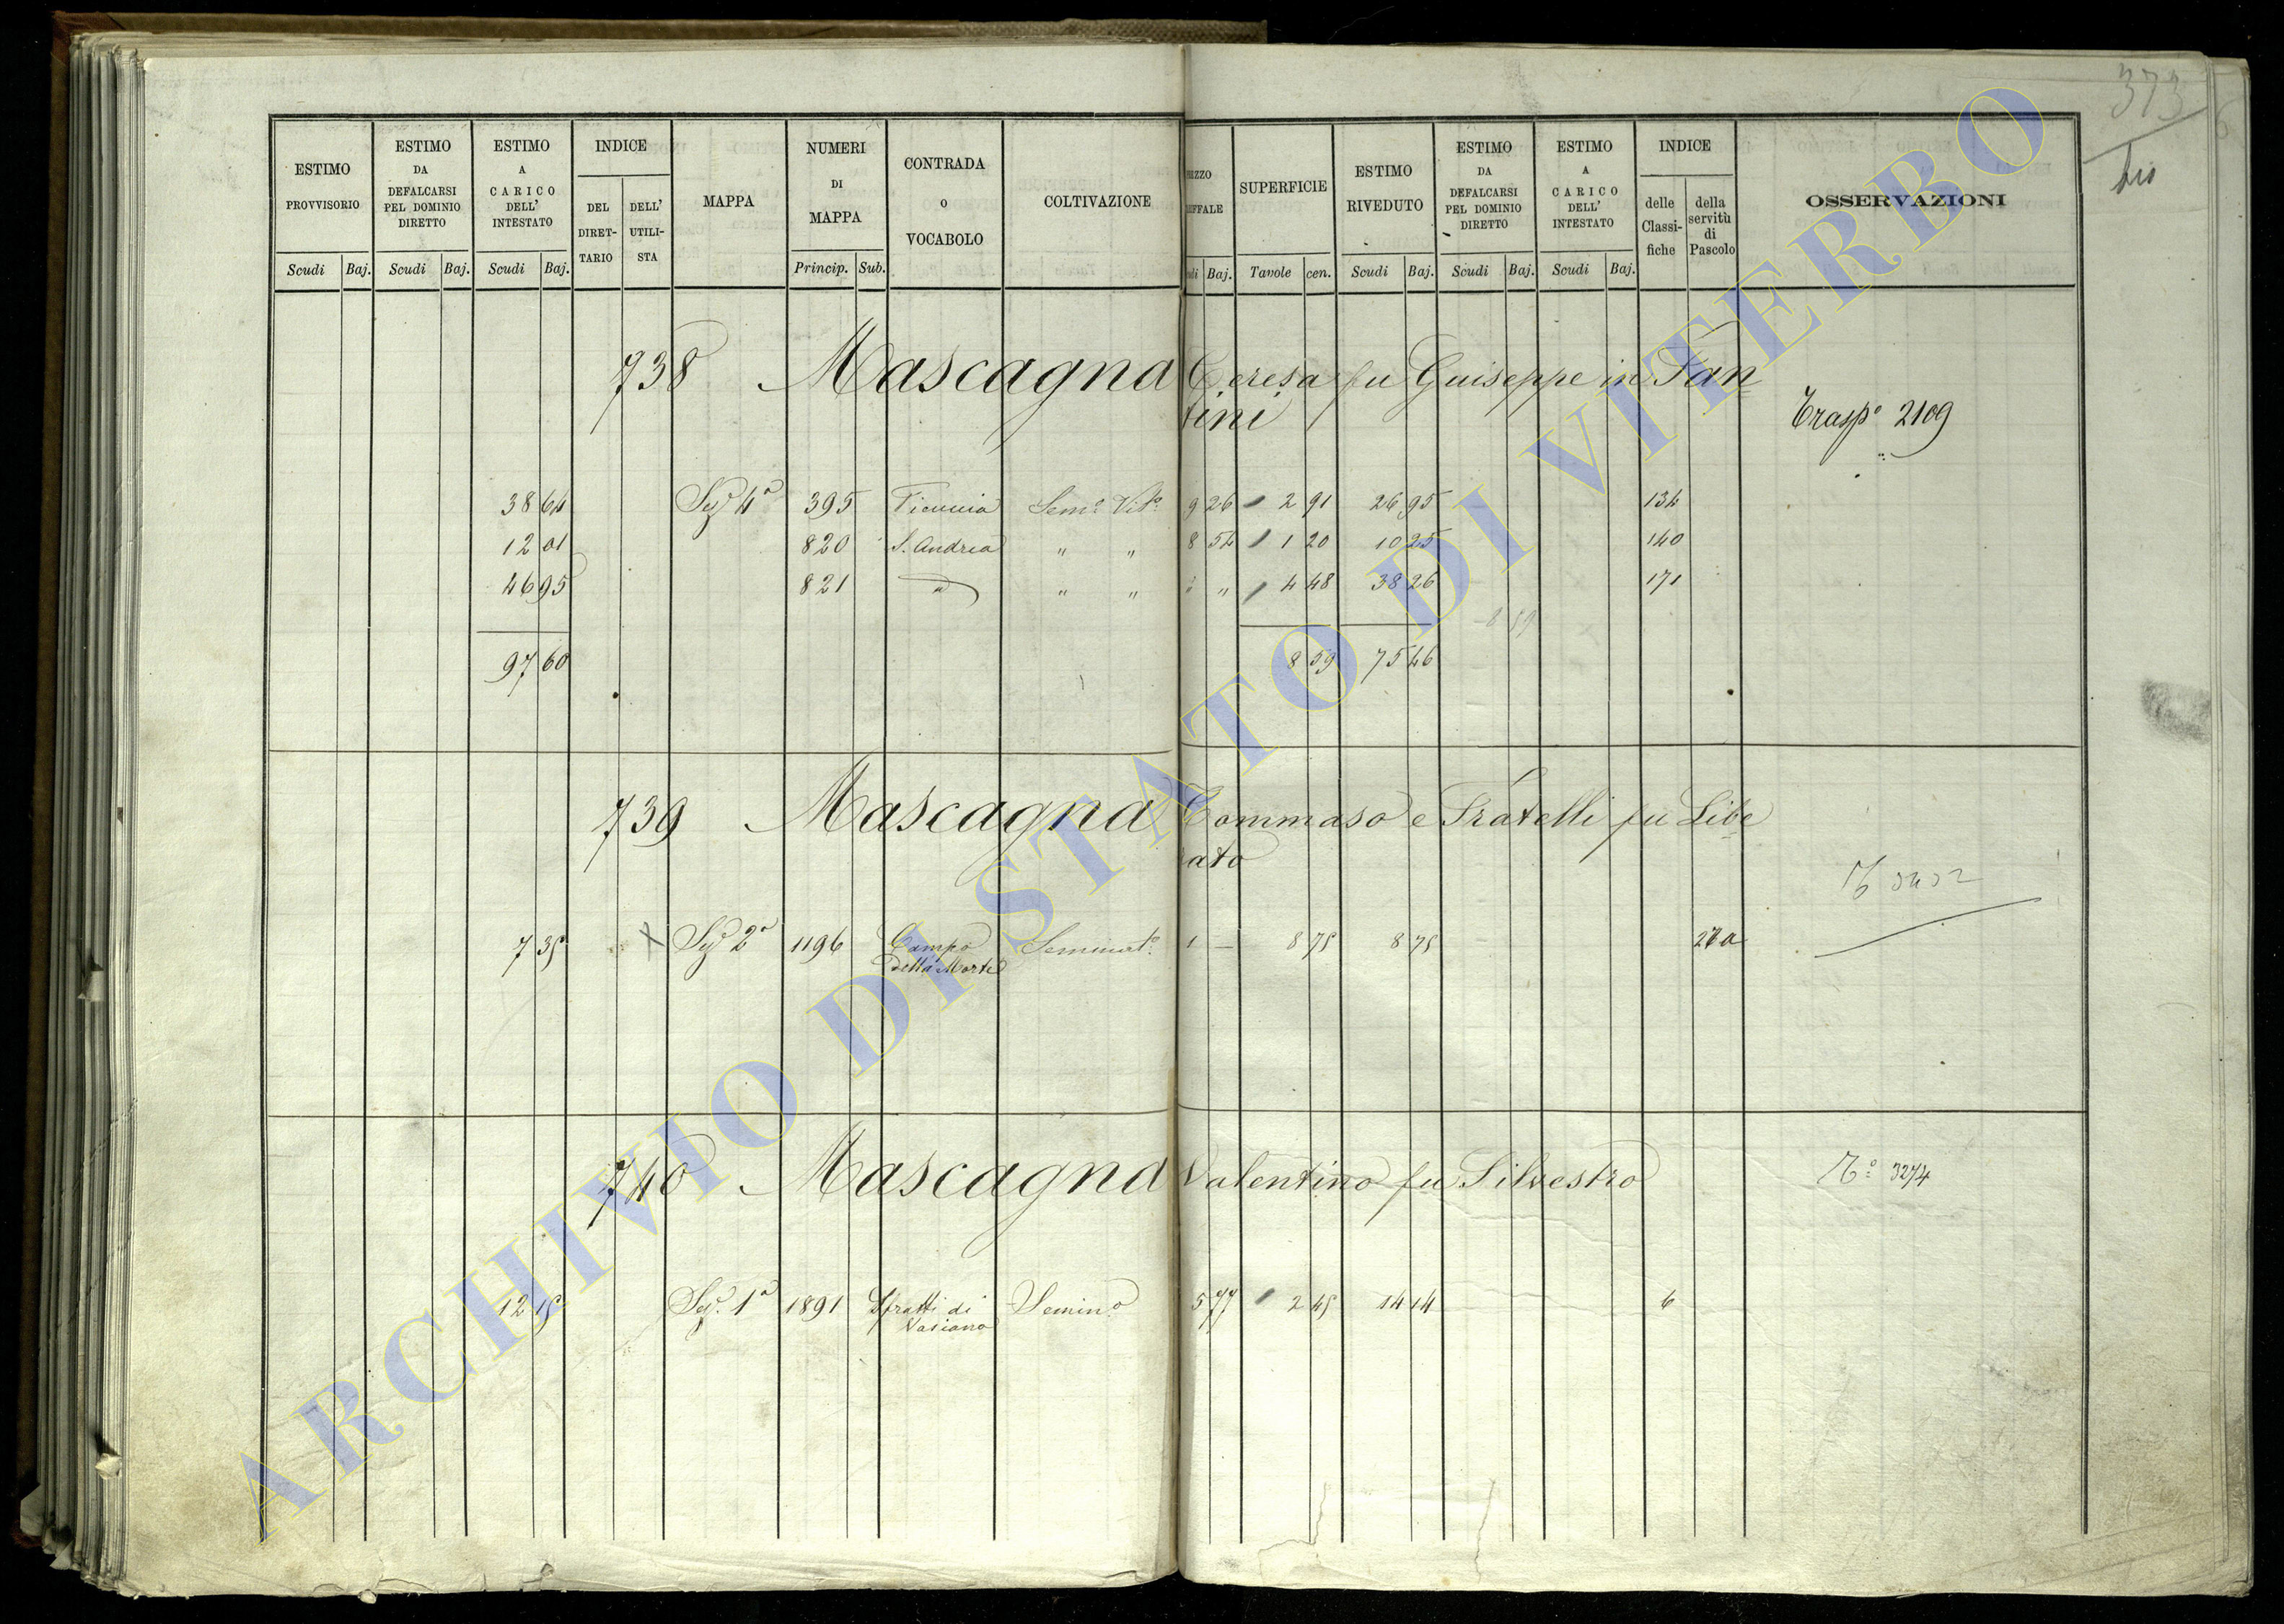 373
bis
ESTIMO PROVVISORIO
Scudi Baj.
ESTIMO DA DEFALCARSI PEL DOMINIO DIRETTO
Scudi Baj.
ESTIMO A CARICO DELL' INTESTATO
Scudi Baj.
INDICE
DEL DIRET- TARIO
DELL' UTILI- STA
MAPPA
NUMERI DI MAPPA
Princip. Sub.
CONTRADA O VOCABOLO
COLTIVAZIONE
EZZO
FFALE
di Baj.
SUPERFICIE
Tavole cen.
ESTIMO RIVEDUTO
Scudi Baj.
ESTIMO DA DEFALCARSI PEL DOMINIO DIRETTO
Scudi Baj.
ESTIMO A CARICO DELL' INTESTATO
Scudi Baj.
INDICE
delle Classi- fiche
della servitù di Pascolo
OSSERVAZIONI
738 Mascagna Teresa fu Guiseppe in San
tini
Trasp.º 2109
38 64 Sez. 4ª 395 Semº Vitº 9 26 2 91 26 95 134
12 01 820 S. Andrea " " 8 54 1 20 10 25 140
46 95 821 " " " " " 4 48 38 26 171
8 59
97 60 8 59 75 46
739 Mascagna Tommaso e Fratelli fu Libe
rato
7 35 X Sez. 2ª 1196 Campo della Morte Seminatº 1 — 8 75 8 75
740 Mascagna Valentino fu Silvestro
Tº 3274
12 15 Sez. 1ª 1891 Sfratti di Vasiano Seminº 5 77 2 45 14 14 6
ARCHIVIO DI STATO DI VITERBO